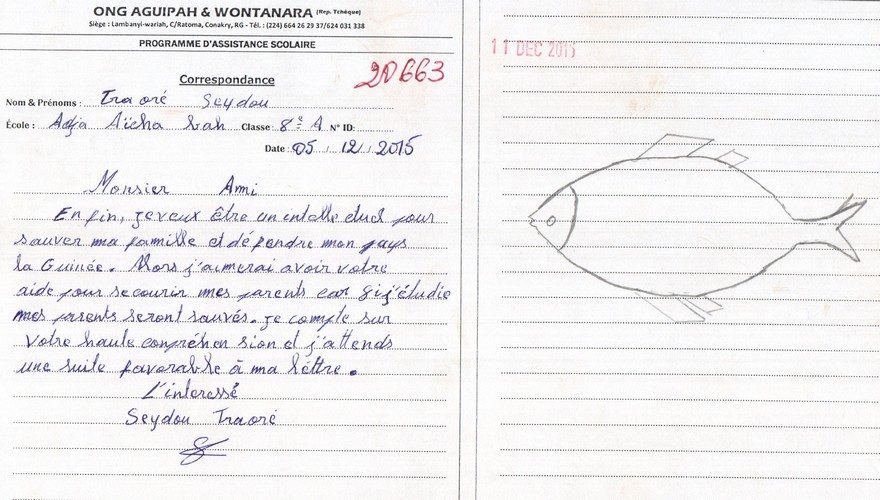 ONG AGUIPAH & WONTANARA (Rep. Tchèque)
Siège : Lambanyi-wariah, C/Ratoma, Conakry, RG - Tél. : (224) 664 26 29 37/624 031 338
PROGRAMME D'ASSISTANCE SCOLAIRE
Correspondance
20663
Nom & Prénoms : Traoré Seydou
École : Adja Aïcha bah Classe : 8e A N° ID:
Date : 05 / 12 / 2015
Monsieur Ami
En fin, je veux être un intelle ctuel pour
sauver ma famille et défendre mon pays
la Guinée. Alors j'aimerai avoir votre
aide pour secourir mes parents car si j'étudie
mes parents seront sauvés. je compte sur
votre haute compréhen sion et j'attends
une suite favorable à ma lettre.
L'interessé
Seydou Traoré
11 DEC 2015